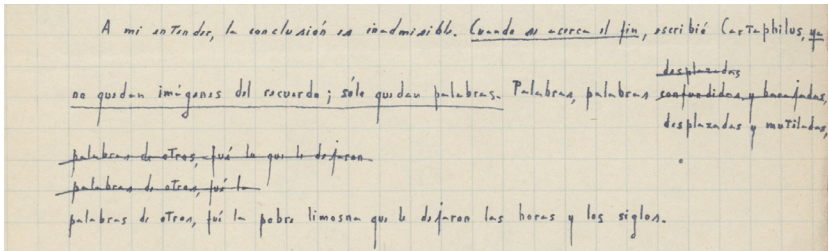 A mi entender, la conclusión es inadmisible. Cuando se acerca el fin, escribió Cartaphilus, ya
desplazadas
no quedan imágenes del recuerdo; sólo quedan palabras. Palabras, palabras confundidas y barajadas,
desplazadas y mutiladas,
palabras de otros, fué lo que le dejaron
palabras de otros, fué la
palabras de otros, fué la pobre limosna que le dejaron las horas y los siglos.